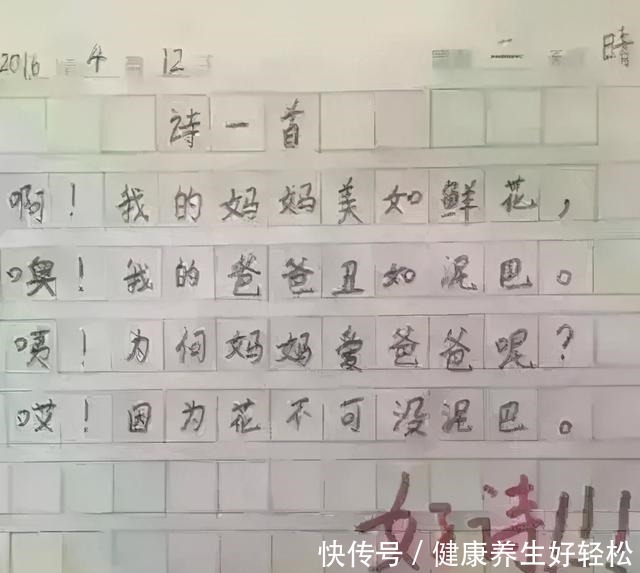 2016 年 4 月 12 日 二 天 晴
诗一首
啊！我的妈妈美如鲜花，
噢！我的爸爸丑如泥巴。
咦！为何妈妈爱爸爸呢？
哎！因为花不可没泥巴。
好诗!!!
快传号 / 健康养生好轻松